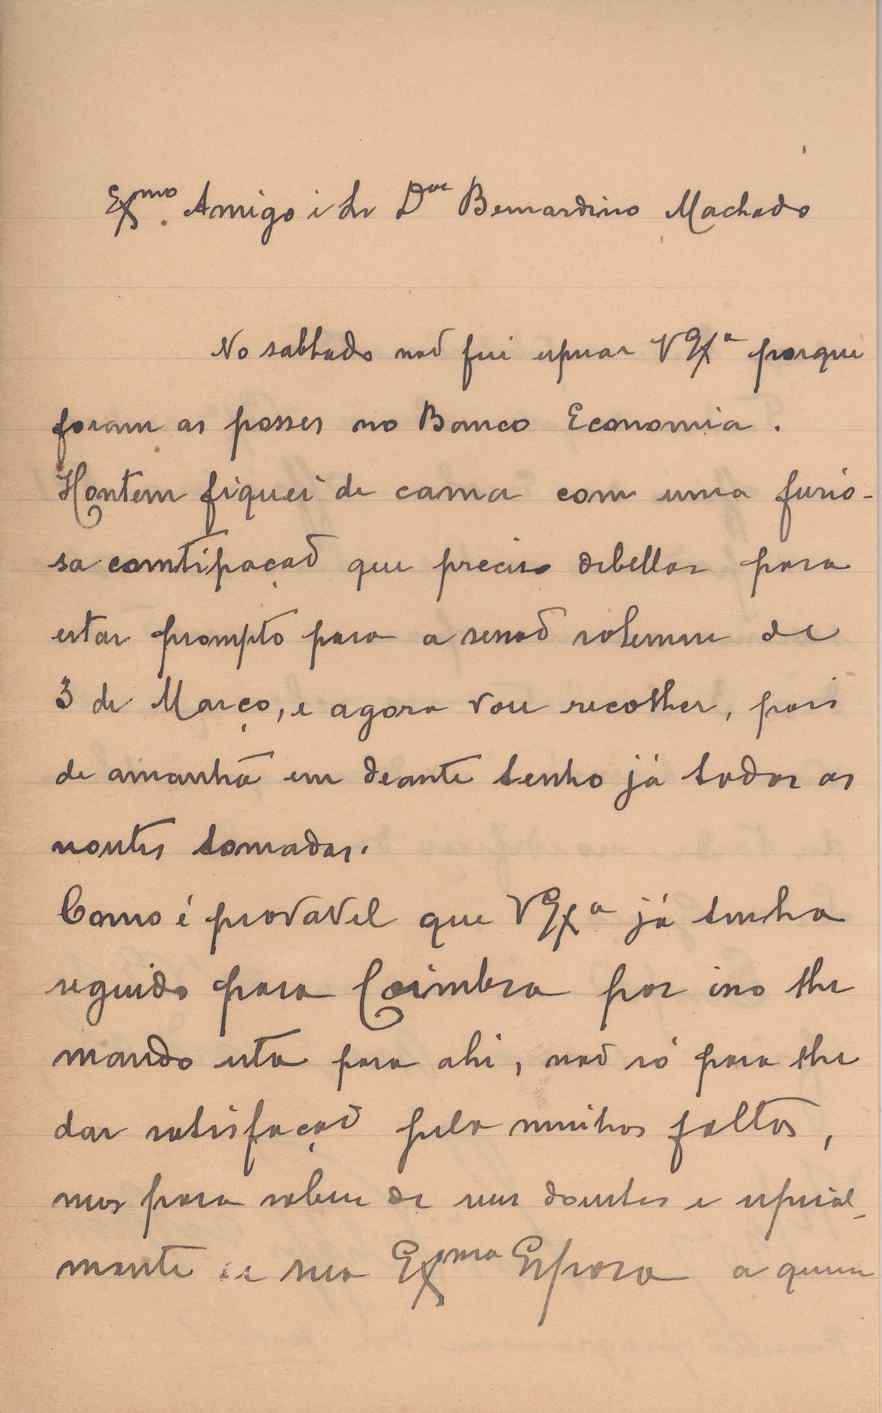 Exmo. Amigo e Sr Dor Bernardino Machado
No sabbado não fui esperar V Exa porque
foram as posses no Banco Economia.
Hontem fiquei de cama com uma furio-
sa comtipação que preciso debellar para
estar prompto para a sessão solemne de
3 de Março, e agora vou recolher, pois
de amanhã em deante tenho já todas as
noutes tomadas.
Como é provavel que V Exa já tenha
seguido para Coimbra por isso lhe
mando esta para ahi, não só para lhe
dar satisfação pela minhas faltas,
mas para saber de seus doentes e espicial-
mente de sua Exma Esposa a quem